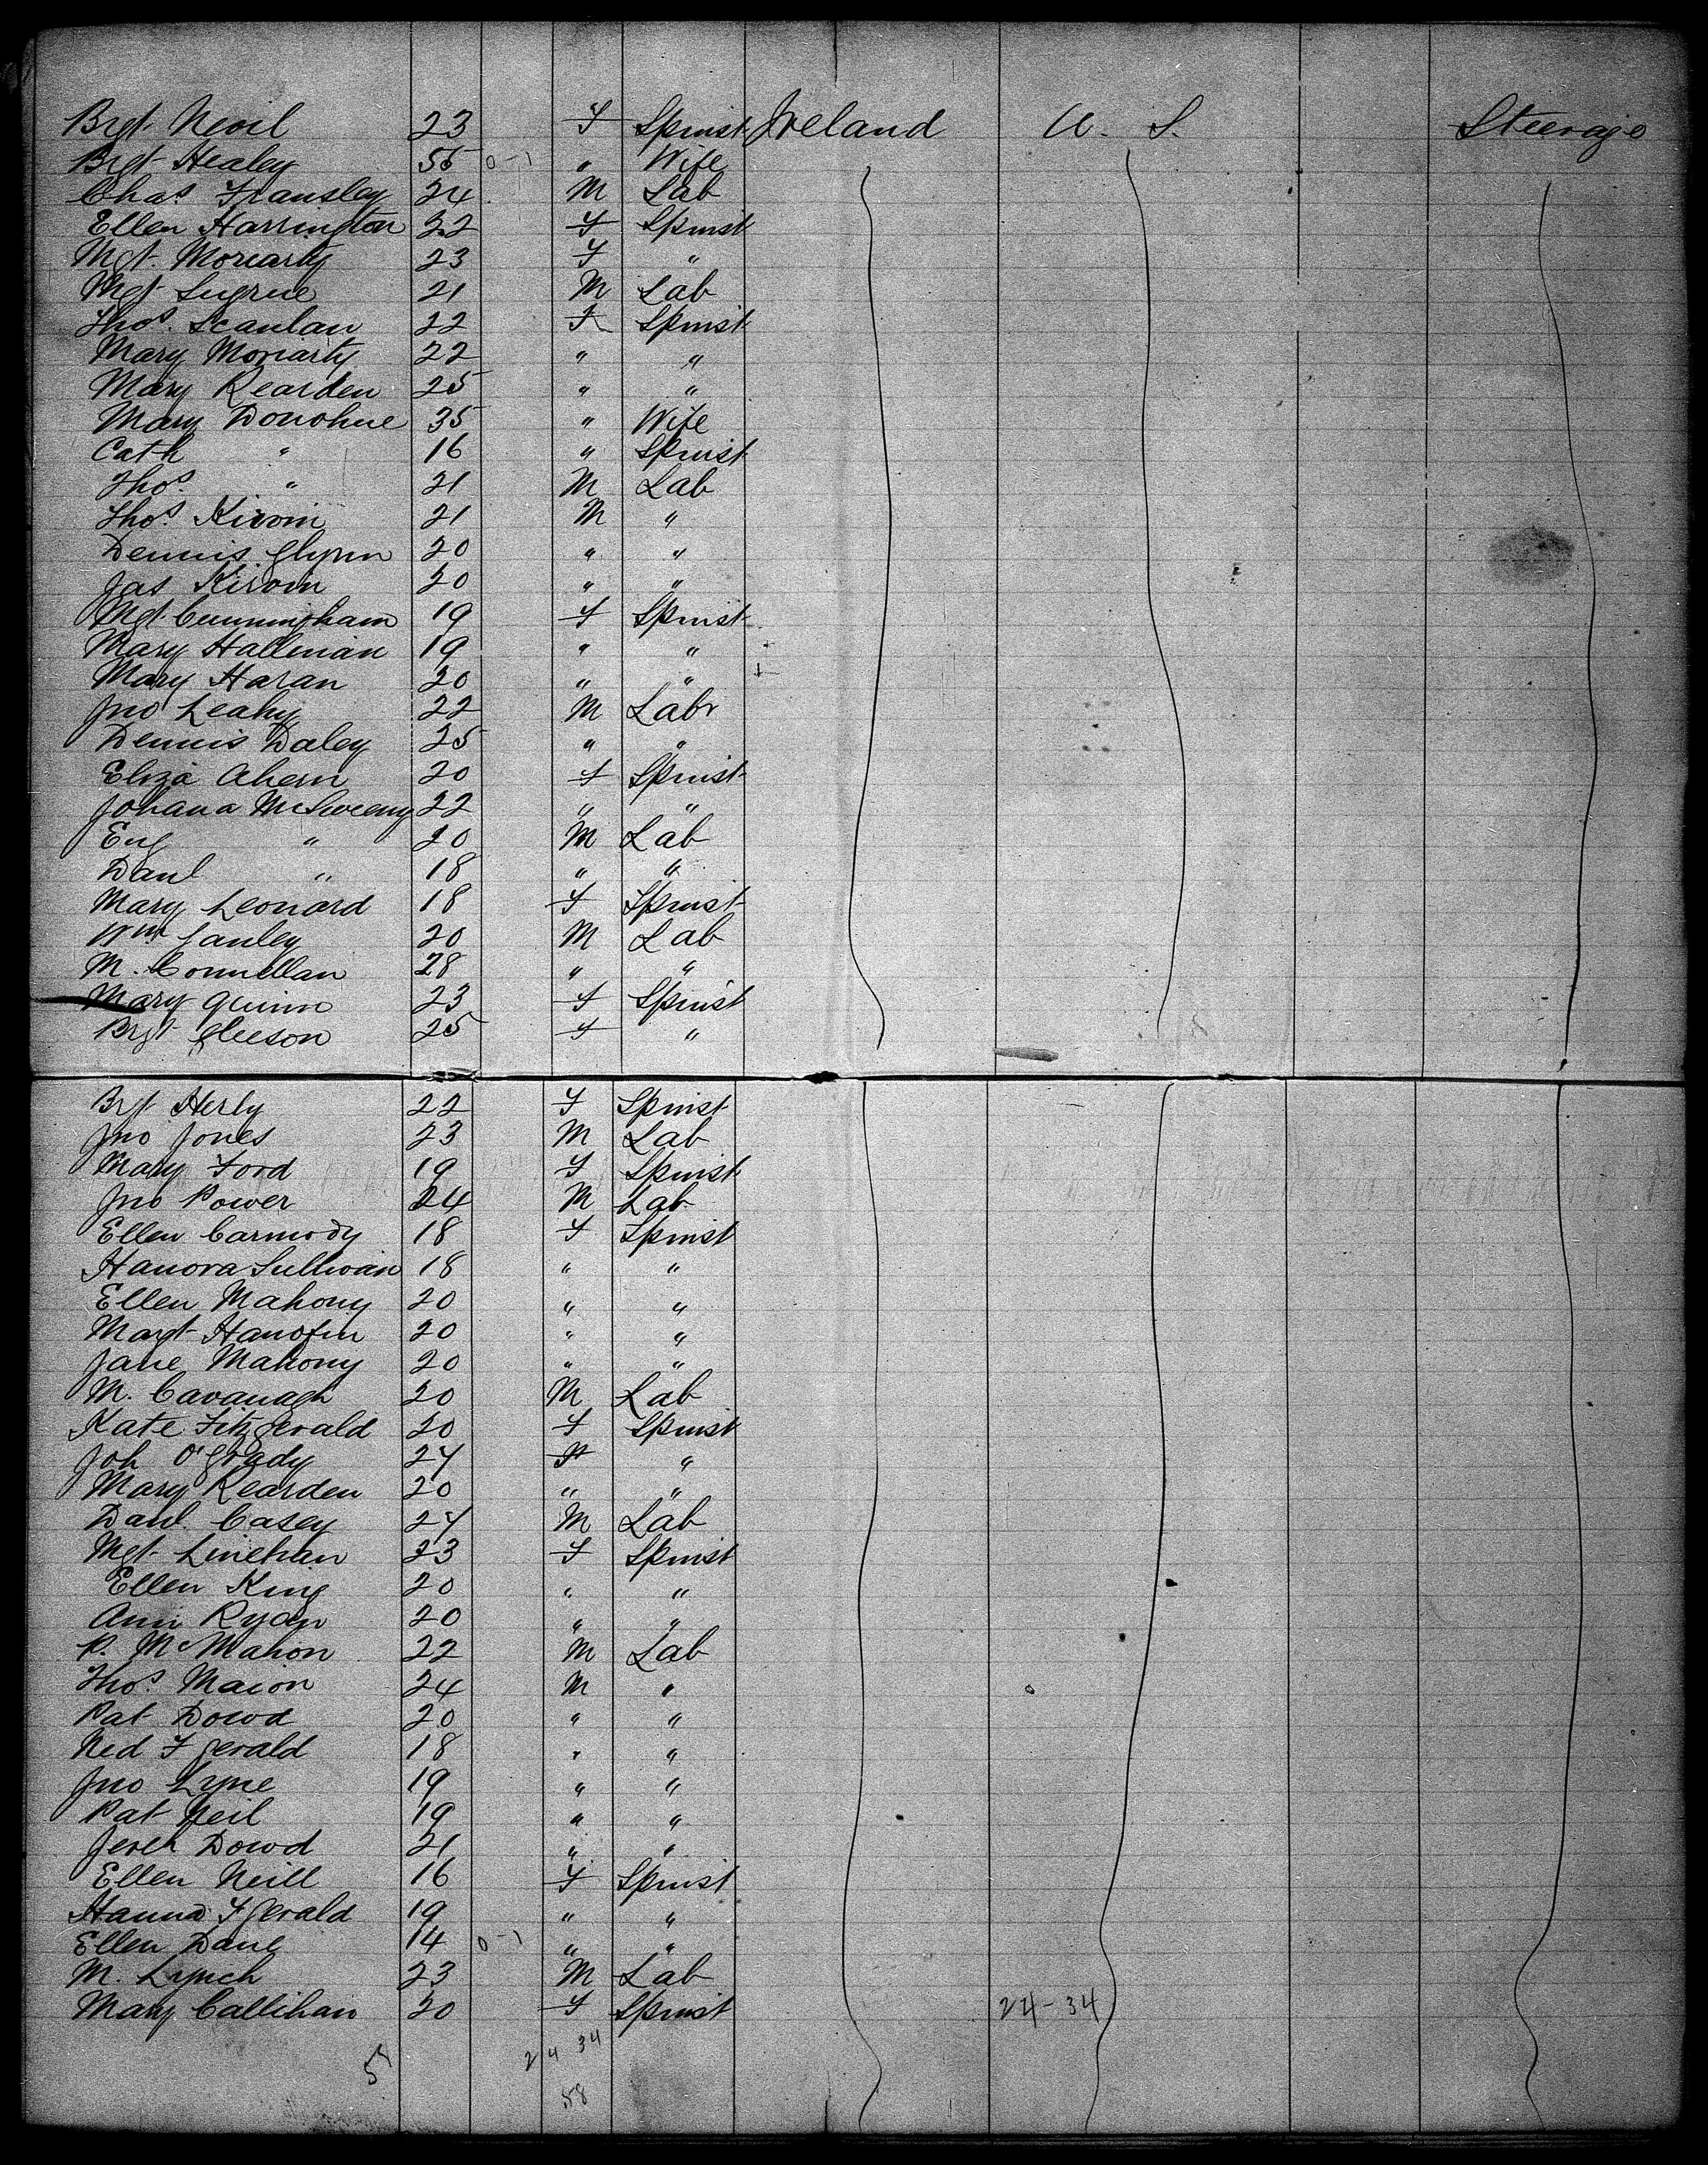 Brgt Nevil 23 F Spinst Ireland U. S. Steerage
Brgt Healey 55 0-1 " Wife
Chas Fransley 24 M Lab
Ellen Harrington 22 F Spinst
Mgt. Moriarty 23 F "
Mgt Sugrue 21 M Lab
Thos. Scanlan 22 F Spinst
Mary Moriarty 22 " "
Mary Rearden 25 " "
Mary Donohue 35 " Wife
Cath " 16 " Spinst
Thos. " 21 M Lab
Thos. Kirwin 21 M "
Dennis Glynn 20 " "
Jas Kirwin 20 " "
Mgt Cunningham 19 F Spinst
Mary Hallinan 19 " "
Mary Haran 20 " "
Jno Leahy 22 M Labr
Dennis Daley 25 " "
Eliza Ahern 20 F Spinst
Johana McSweeny 22 " "
Eug " 20 M Lab
Danl " 18 " "
Mary Leonard 18 F Spinst
Wm Ganley 20 M Lab
M. Connellan 28 " "
Mary Quinn 23 F Spinst
Brgt Gleeson 25 F "
Brgt Herly 22 F Spinst
Jno Jones 23 M Lab
Mary Ford 19 F Spinst
Jno Power 24 M Lab
Ellen Carmody 18 F Spinst
Hanora Sullivan 18 " "
Ellen Mahony 20 " "
Margt Hanofin 20 " "
Jane Mahony 20 " "
M. Cavanagh 20 M Lab
Kate Fitzgerald 20 F Spinst
Joh O'Grady 24 F "
Mary Rearden 20 " "
Danl. Casey 24 M Lab
Mgt Linehan 23 F Spinst
Ellen King 20 " "
Ann Ryan 20 " "
P. McMahon 22 M Lab
Thos. Maion 24 M "
Pat Dowd 20 " "
Ned F gerald 18 " "
Jno Lyne 19 " "
Pat Neil 19 " "
Jereh Dowd 21 " "
Ellen Neill 16 F Spinst
Hanna F gerald 19 " "
Ellen Dane 14 0-1 " "
M. Lynch 23 M Lab
Mary Callihan 20 F Spinst 24-34
24 34
58